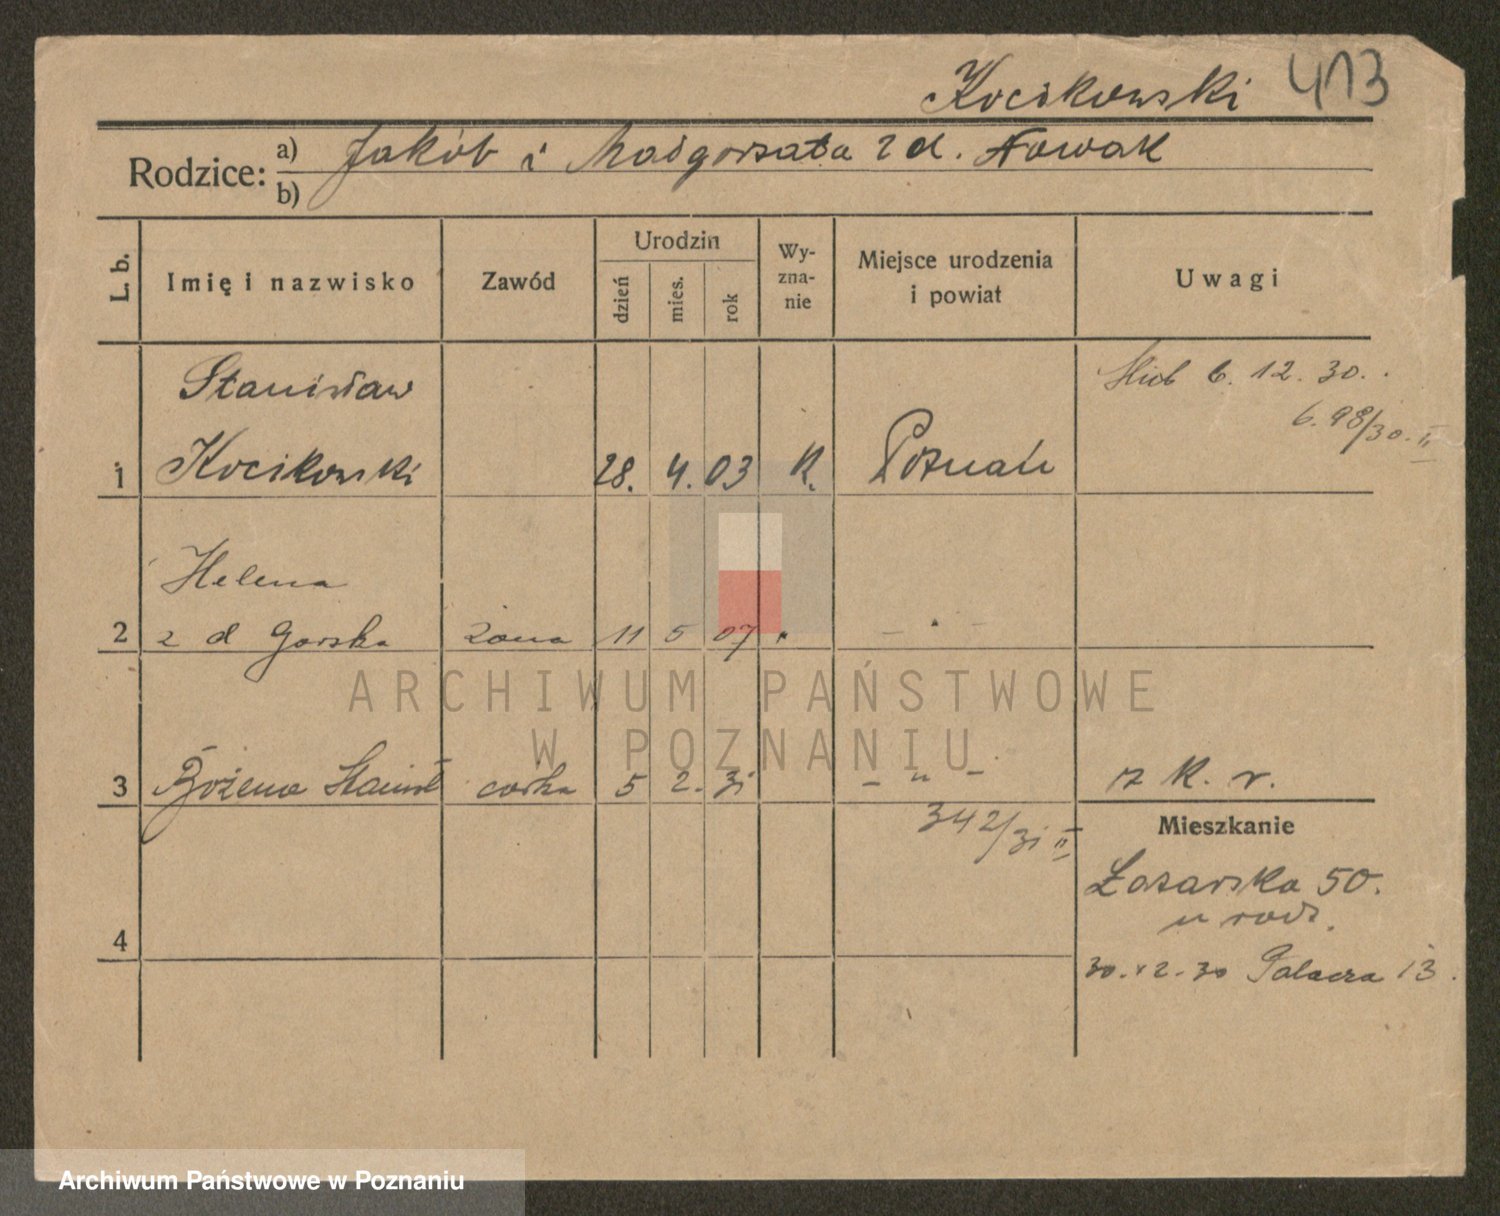 Kocikowski 413
Rodzice: a) Jakób i Małgorzata z d. Nowak
b)
L. b. Imię i nazwisko Zawód Urodzin dzień mies. rok Wy-zna-nie Miejsce urodzenia i powiat Uwagi
Stanisław
ślub 6. 12. 30.
6.98/30. II
1 Kocikowski 28. 4. 03 R. Poznań
Helena
2 z d Gorska żona 11 5 07 " - " -
ARCHIWUM PAŃSTWOWE
W POZNANIU
3 Bożena Stanisł corka 5 2. 31 - " - z K. r.
342/31 II
Mieszkanie
Łazarska 50.
u rodz.
4
30.12.30 Palacza 13.
Archiwum Państwowe w Poznaniu